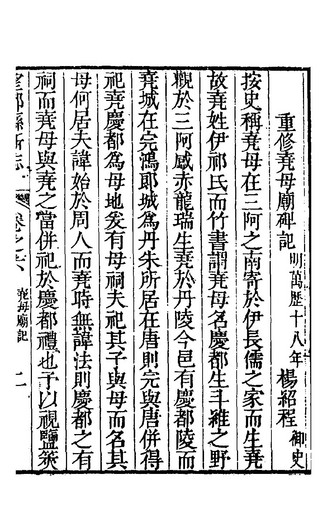 重修堯母廟碑記 明萬歷十八年 楊紹程 御史
按史稱堯母在三阿之南寄於伊長孺之家而生堯
故堯姓伊祁氏而竹書謂堯母名慶都生斗維之野
觀於三阿感赤龍瑞生堯於丹陵今邑有慶都陵而
堯城在完鴻郎城為丹朱所居在唐則完與唐併得
祀堯慶都為母地爰有母祠夫祀其子與母而名其
母何居夫諱始於周人而堯時無諱法則慶都之有
祠而堯母與堯之當併祀於慶都禮也予以視鹽筴
望都縣新志 卷之六 堯母廟記 二